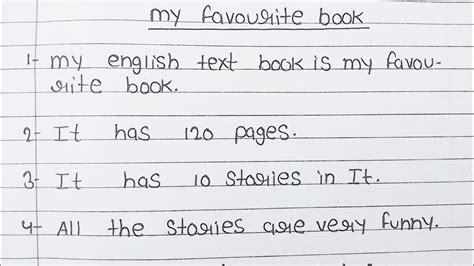 my favourite book
1- my english text book is my favou-
rite book.
2- It has 120 pages.
3- It has 10 stories in It.
4- All the stories are very funny.